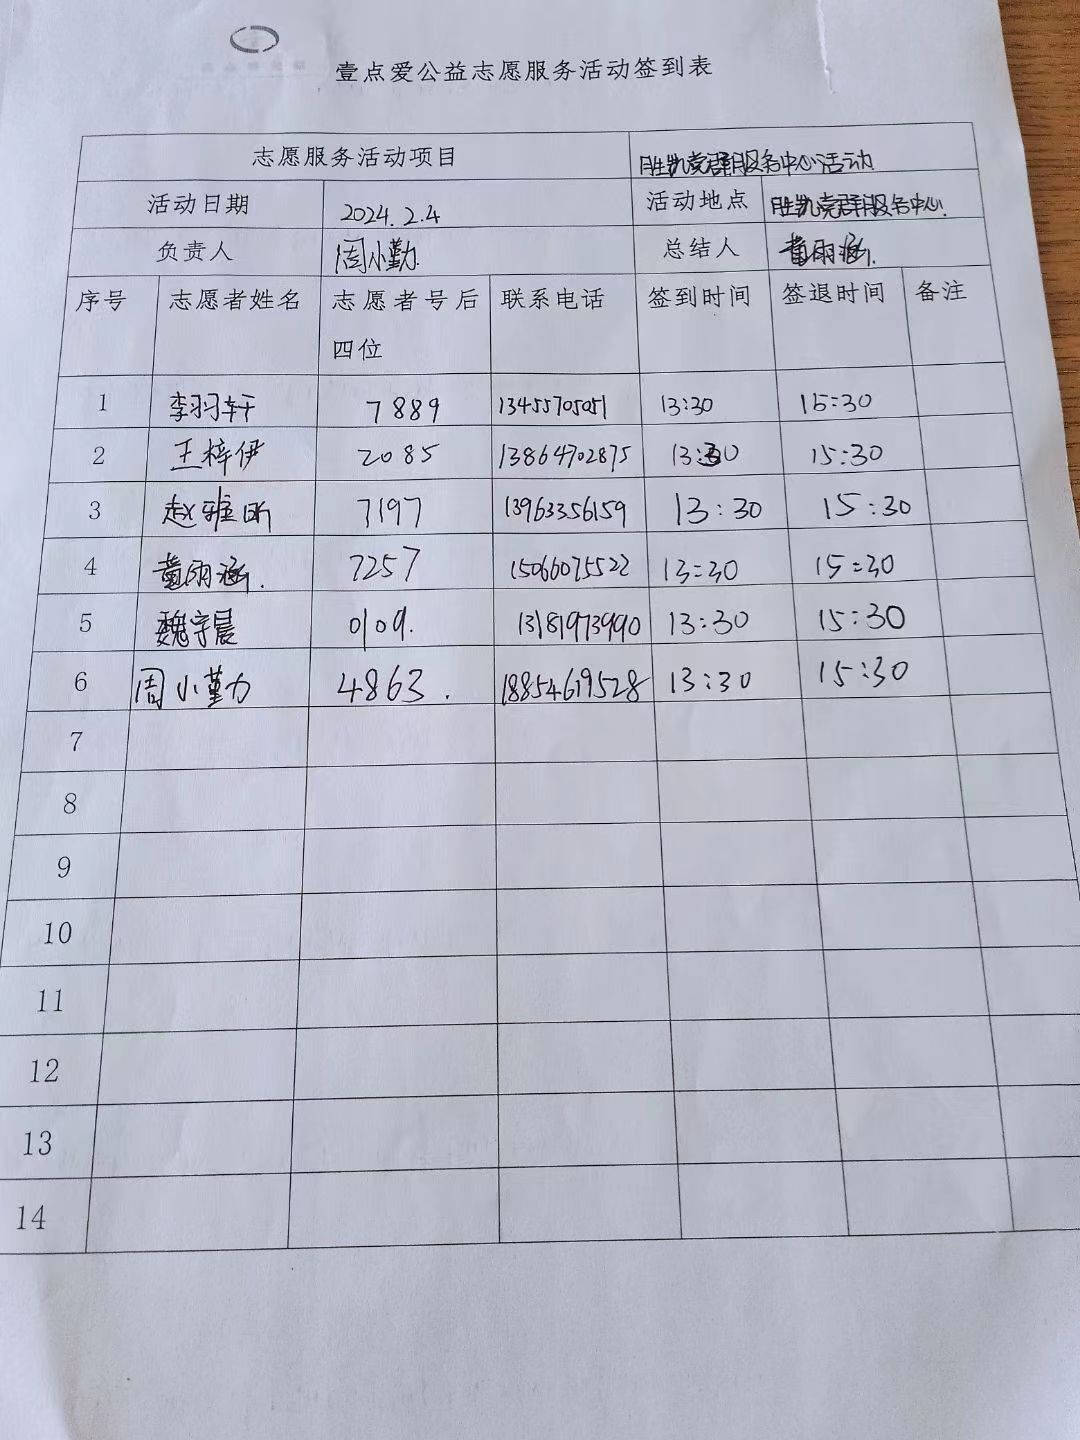 壹点爱公益志愿服务活动签到表
志愿服务活动项目 胜凯党群服务中心活动
活动日期 2024.2.4 活动地点 胜凯党群服务中心.
负责人 周小勤. 总结人 黄雨涵.
序号 志愿者姓名 志愿者号后四位 联系电话 签到时间 签退时间 备注
1 李羽轩 7889 13455705051 13:30 15:30
2 王梓伊 2085 13864702875 13:30 15:30
3 赵雅昕 7197 13963356159 13:30 15:30
4 黄雨涵. 7257 15066075522 13:30 15:30
5 魏宇晨 0109. 13181973990 13:30 15:30
6 周小勤 4863. 18854619528 13:30 15:30
7
8
9
10
11
12
13
14